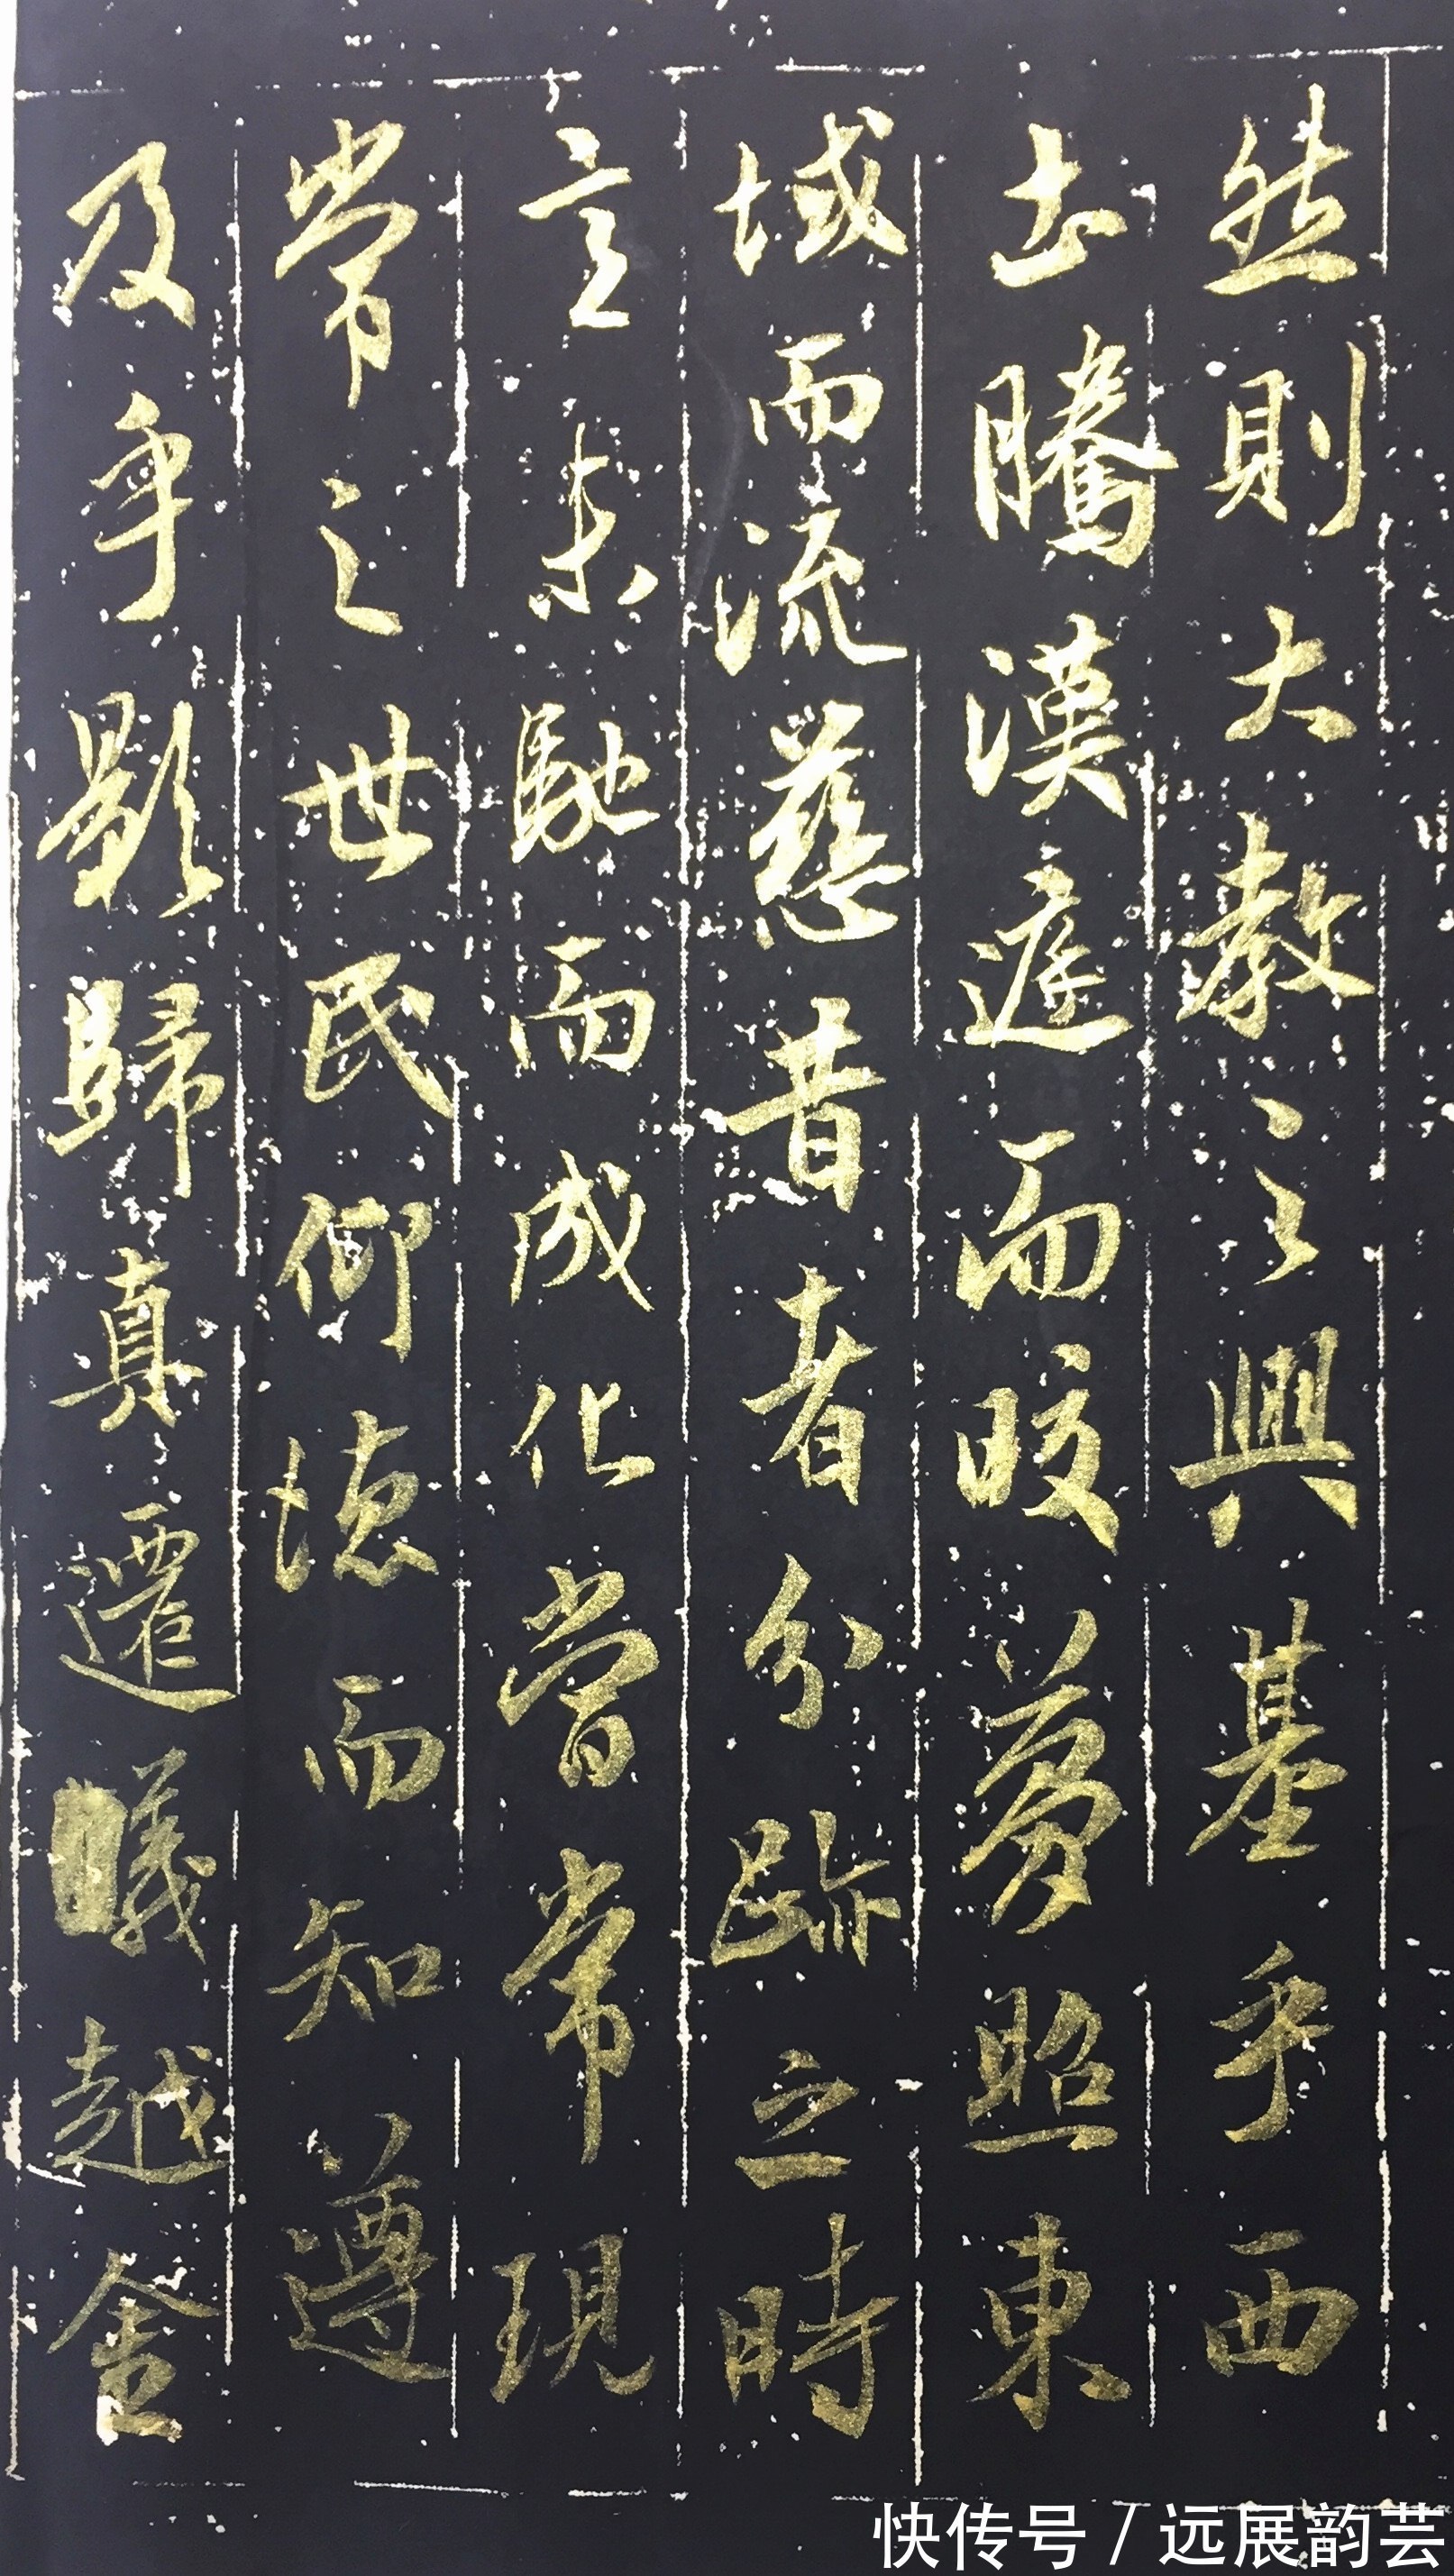 然則大教之興基乎西
土騰漢遊而皎夢照東
域而流慈昔者分跡之時
言未馳而成化當常現
常之世民仰德而知遵
及乎影歸真遷儀越金
快传号/远展韵芸